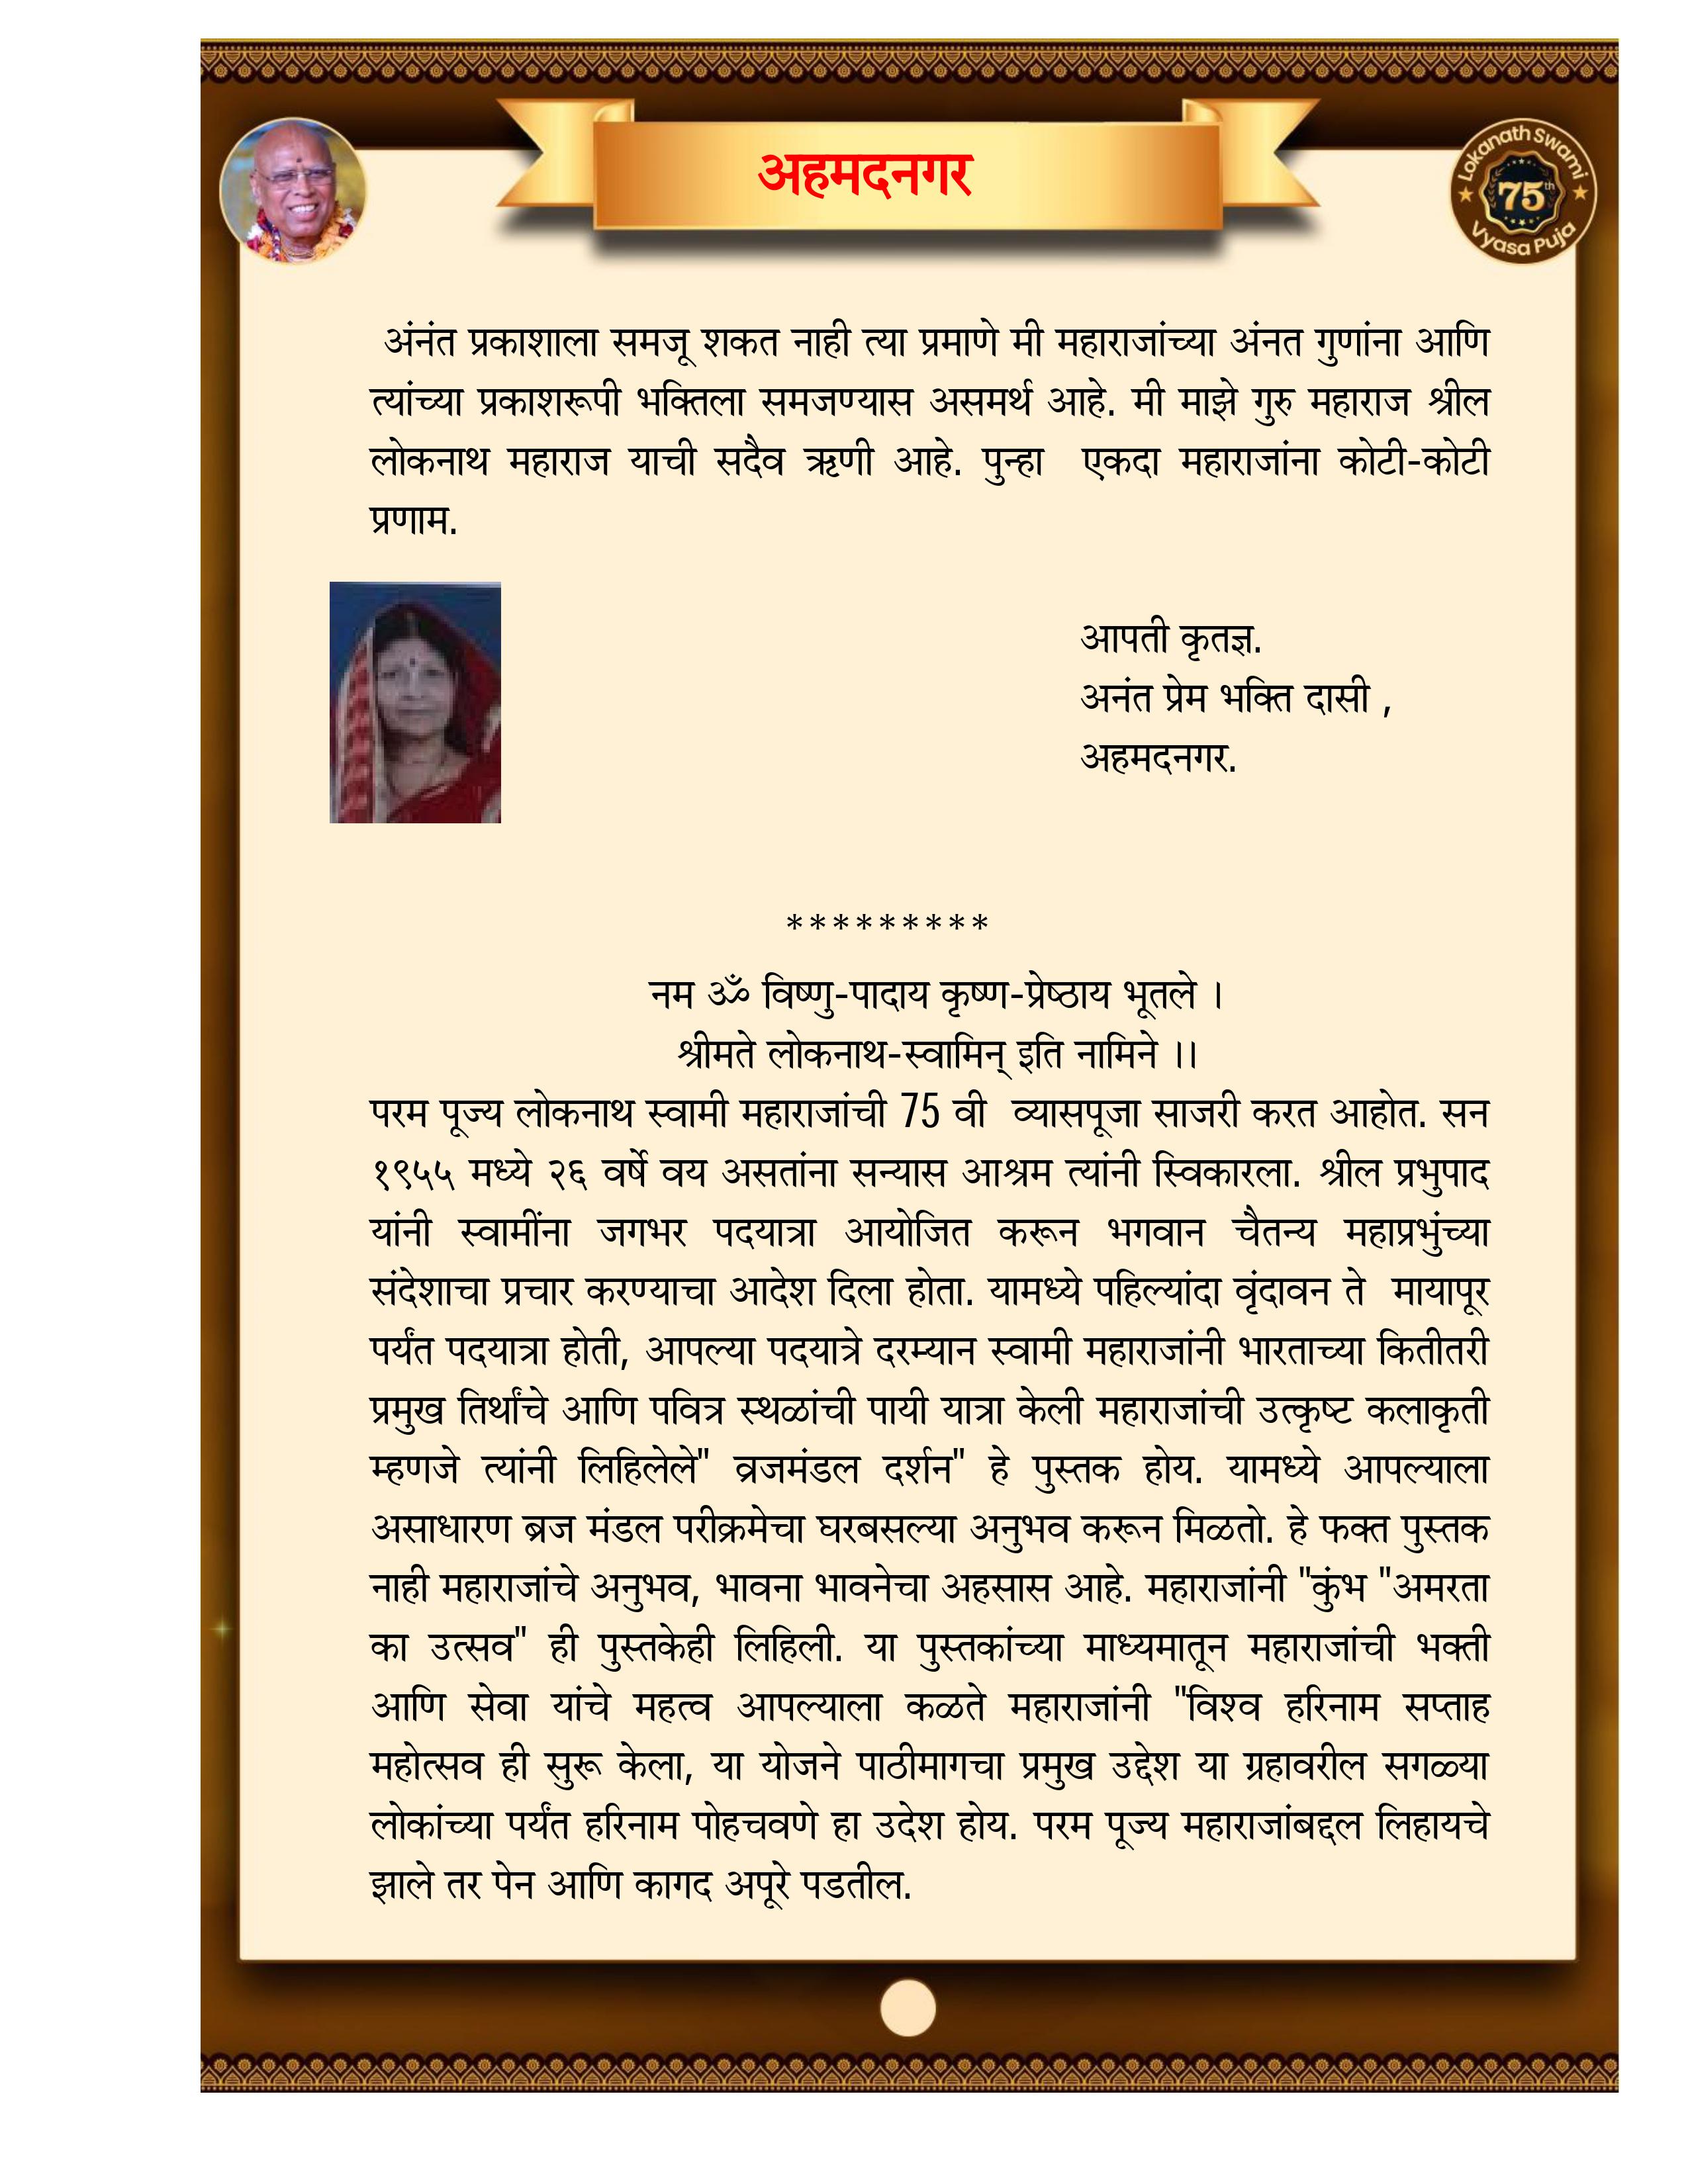 अहमदनगर
Lokanath Swami
75th
Vyasa Puja
अंनंत प्रकाशाला समजू शकत नाही त्या प्रमाणे मी महाराजांच्या अंनत गुणांना आणि
त्यांच्या प्रकाशरूपी भक्तिला समजण्यास असमर्थ आहे. मी माझे गुरु महाराज श्रील
लोकनाथ महाराज याची सदैव ऋणी आहे. पुन्हा एकदा महाराजांना कोटी-कोटी
प्रणाम.
आपती कृतज्ञ.
अनंत प्रेम भक्ति दासी ,
अहमदनगर.
*********
नम ॐ विष्णु-पादाय कृष्ण-प्रेष्ठाय भूतले ।
श्रीमते लोकनाथ-स्वामिन् इति नामिने ।।
परम पूज्य लोकनाथ स्वामी महाराजांची 75 वी व्यासपूजा साजरी करत आहोत. सन
१९५५ मध्ये २६ वर्षे वय असतांना सन्यास आश्रम त्यांनी स्विकारला. श्रील प्रभुपाद
यांनी स्वामींना जगभर पदयात्रा आयोजित करून भगवान चैतन्य महाप्रभुंच्या
संदेशाचा प्रचार करण्याचा आदेश दिला होता. यामध्ये पहिल्यांदा वृंदावन ते मायापूर
पर्यंत पदयात्रा होती, आपल्या पदयात्रे दरम्यान स्वामी महाराजांनी भारताच्या कितीतरी
प्रमुख तिर्थांचे आणि पवित्र स्थळांची पायी यात्रा केली महाराजांची उत्कृष्ट कलाकृती
म्हणजे त्यांनी लिहिलेले" व्रजमंडल दर्शन" हे पुस्तक होय. यामध्ये आपल्याला
असाधारण ब्रज मंडल परीक्रमेचा घरबसल्या अनुभव करून मिळतो. हे फक्त पुस्तक
नाही महाराजांचे अनुभव, भावना भावनेचा अहसास आहे. महाराजांनी "कुंभ "अमरता
का उत्सव" ही पुस्तकेही लिहिली. या पुस्तकांच्या माध्यमातून महाराजांची भक्ती
आणि सेवा यांचे महत्व आपल्याला कळते महाराजांनी "विश्व हरिनाम सप्ताह
महोत्सव ही सुरू केला, या योजने पाठीमागचा प्रमुख उद्देश या ग्रहावरील सगळ्या
लोकांच्या पर्यंत हरिनाम पोहचवणे हा उदेश होय. परम पूज्य महाराजांबद्दल लिहायचे
झाले तर पेन आणि कागद अपूरे पडतील.